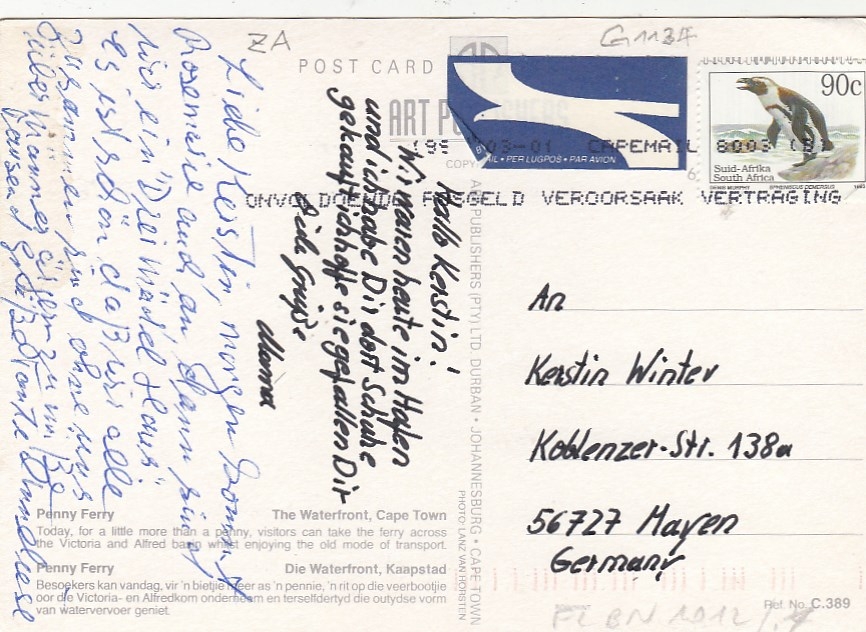 ZA
G1137
POST CARD
ART PUBLISHERS
COPY
BY AIR MAIL • PER LUGPOS • PAR AVION
90c
Suid-Afrika
South Africa
DENIS MURPHY SPHENISCUS DEMERSUS 1993
03-01 CAPEMAIL 8003 (B)
ONVOLDOENDE POSGELD VEROORSAAK VERTRAGING
Hallo Kerstin!
Wir waren heute im Hafen
und ich habe Dir dort Schuhe
gekauft ich hoffe sie gefallen Dir
Viele Grüße
Mama
Liebe Kerstin, morgen
und an
wir ein "Drei Mädel Haus"
es ist schön daß wir alle
zusammen sind ohne uns
über Männer ärgern zu
Tausend Grüße Tante Anneliese
ART PUBLISHERS (PTY) LTD. DURBAN • JOHANNESBURG • CAPE TOWN
PHOTO: LANZ VAN HÖRSTEN
An
Kerstin Winter
Koblenzer-Str. 138a
56727 Mayen
Germany
Penny Ferry The Waterfront, Cape Town
Today, for a little more than a penny, visitors can take the ferry across
the Victoria and Alfred basin whilst enjoying the old mode of transport.
Penny Ferry Die Waterfront, Kaapstad
Besoekers kan vandag, vir 'n bietjie meer as 'n pennie, 'n rit op die veerbootjie
oor die Victoria- en Alfredkom onderneem en terselfdertyd die outydse vorm
van watervervoer geniet.
Ref. No. C.389